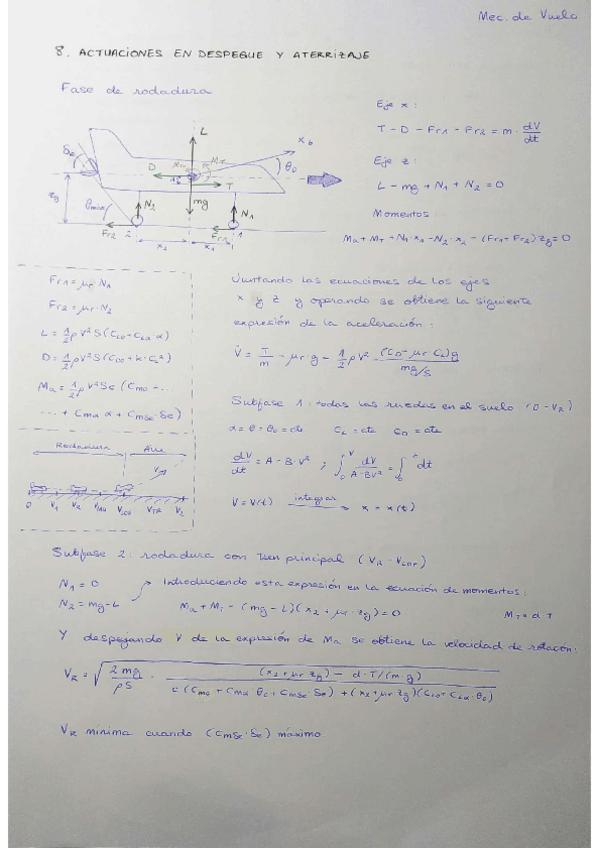 Mec. de Vuelo
8. ACTUACIONES EN DESPEGUE Y ATERRIZAJE
Fase de rodadura
Eje x:
T - D - Fr1 - Fr2 = m · dV/dt
Eje z:
L - mg + N1 + N2 = 0
Momentos
Ma + MT + N1·x1 - N2·x2 - (Fr1 + Fr2) zg = 0
L
xb
δe
D
MT
θ0
T
zg
θmax
N2
mg
N1
Fr2
2
x2
x1
Fr1
1
Fr1 = μr · N1
Fr2 = μr · N2
L = 1/2 ρ V² S (CL0 + CLα · α)
D = 1/2 ρ V² S (CD0 + k · CL²)
Ma = 1/2 ρ V² S c (Cm0 + ...
... + Cmα α + Cmδe · δe)
Juntando las ecuaciones de los ejes
x y z y operando se obtiene la siguiente
expresión de la aceleración:
V̇ = T/m - μr · g - 1/2 ρ V² · (CD - μr CL) g / mg/S
Subfase 1: todas las ruedas en el suelo (0 - VR)
α = θ = θ0 = cte CL = cte CD = cte
dV/dt = A - B · V² ; ∫0^V dV / A - BV² = ∫ dt
V = V(t) integrar x = x(t)
Rodadura Aire
V
0 V1 VR VMU VLOF VTR V2
Subfase 2: rodadura con tren principal (VR - VLOF)
N1 = 0
N2 = mg - L
Introduciendo esta expresión en la ecuación de momentos:
Ma + MT - (mg - L)(x2 + μr · zg) = 0 MT = d · T
Y despejando V de la expresión de Ma se obtiene la velocidad de rotación:
VR = √ 2mg / ρS · (x2 + μr zg) - d · T/(m · g) / c (Cm0 + Cmα θ0 + Cmδe · δe) + (x2 + μr zg)(CL0 + CLα · θ0)
VR mínima cuando (Cmδe · δe) máximo